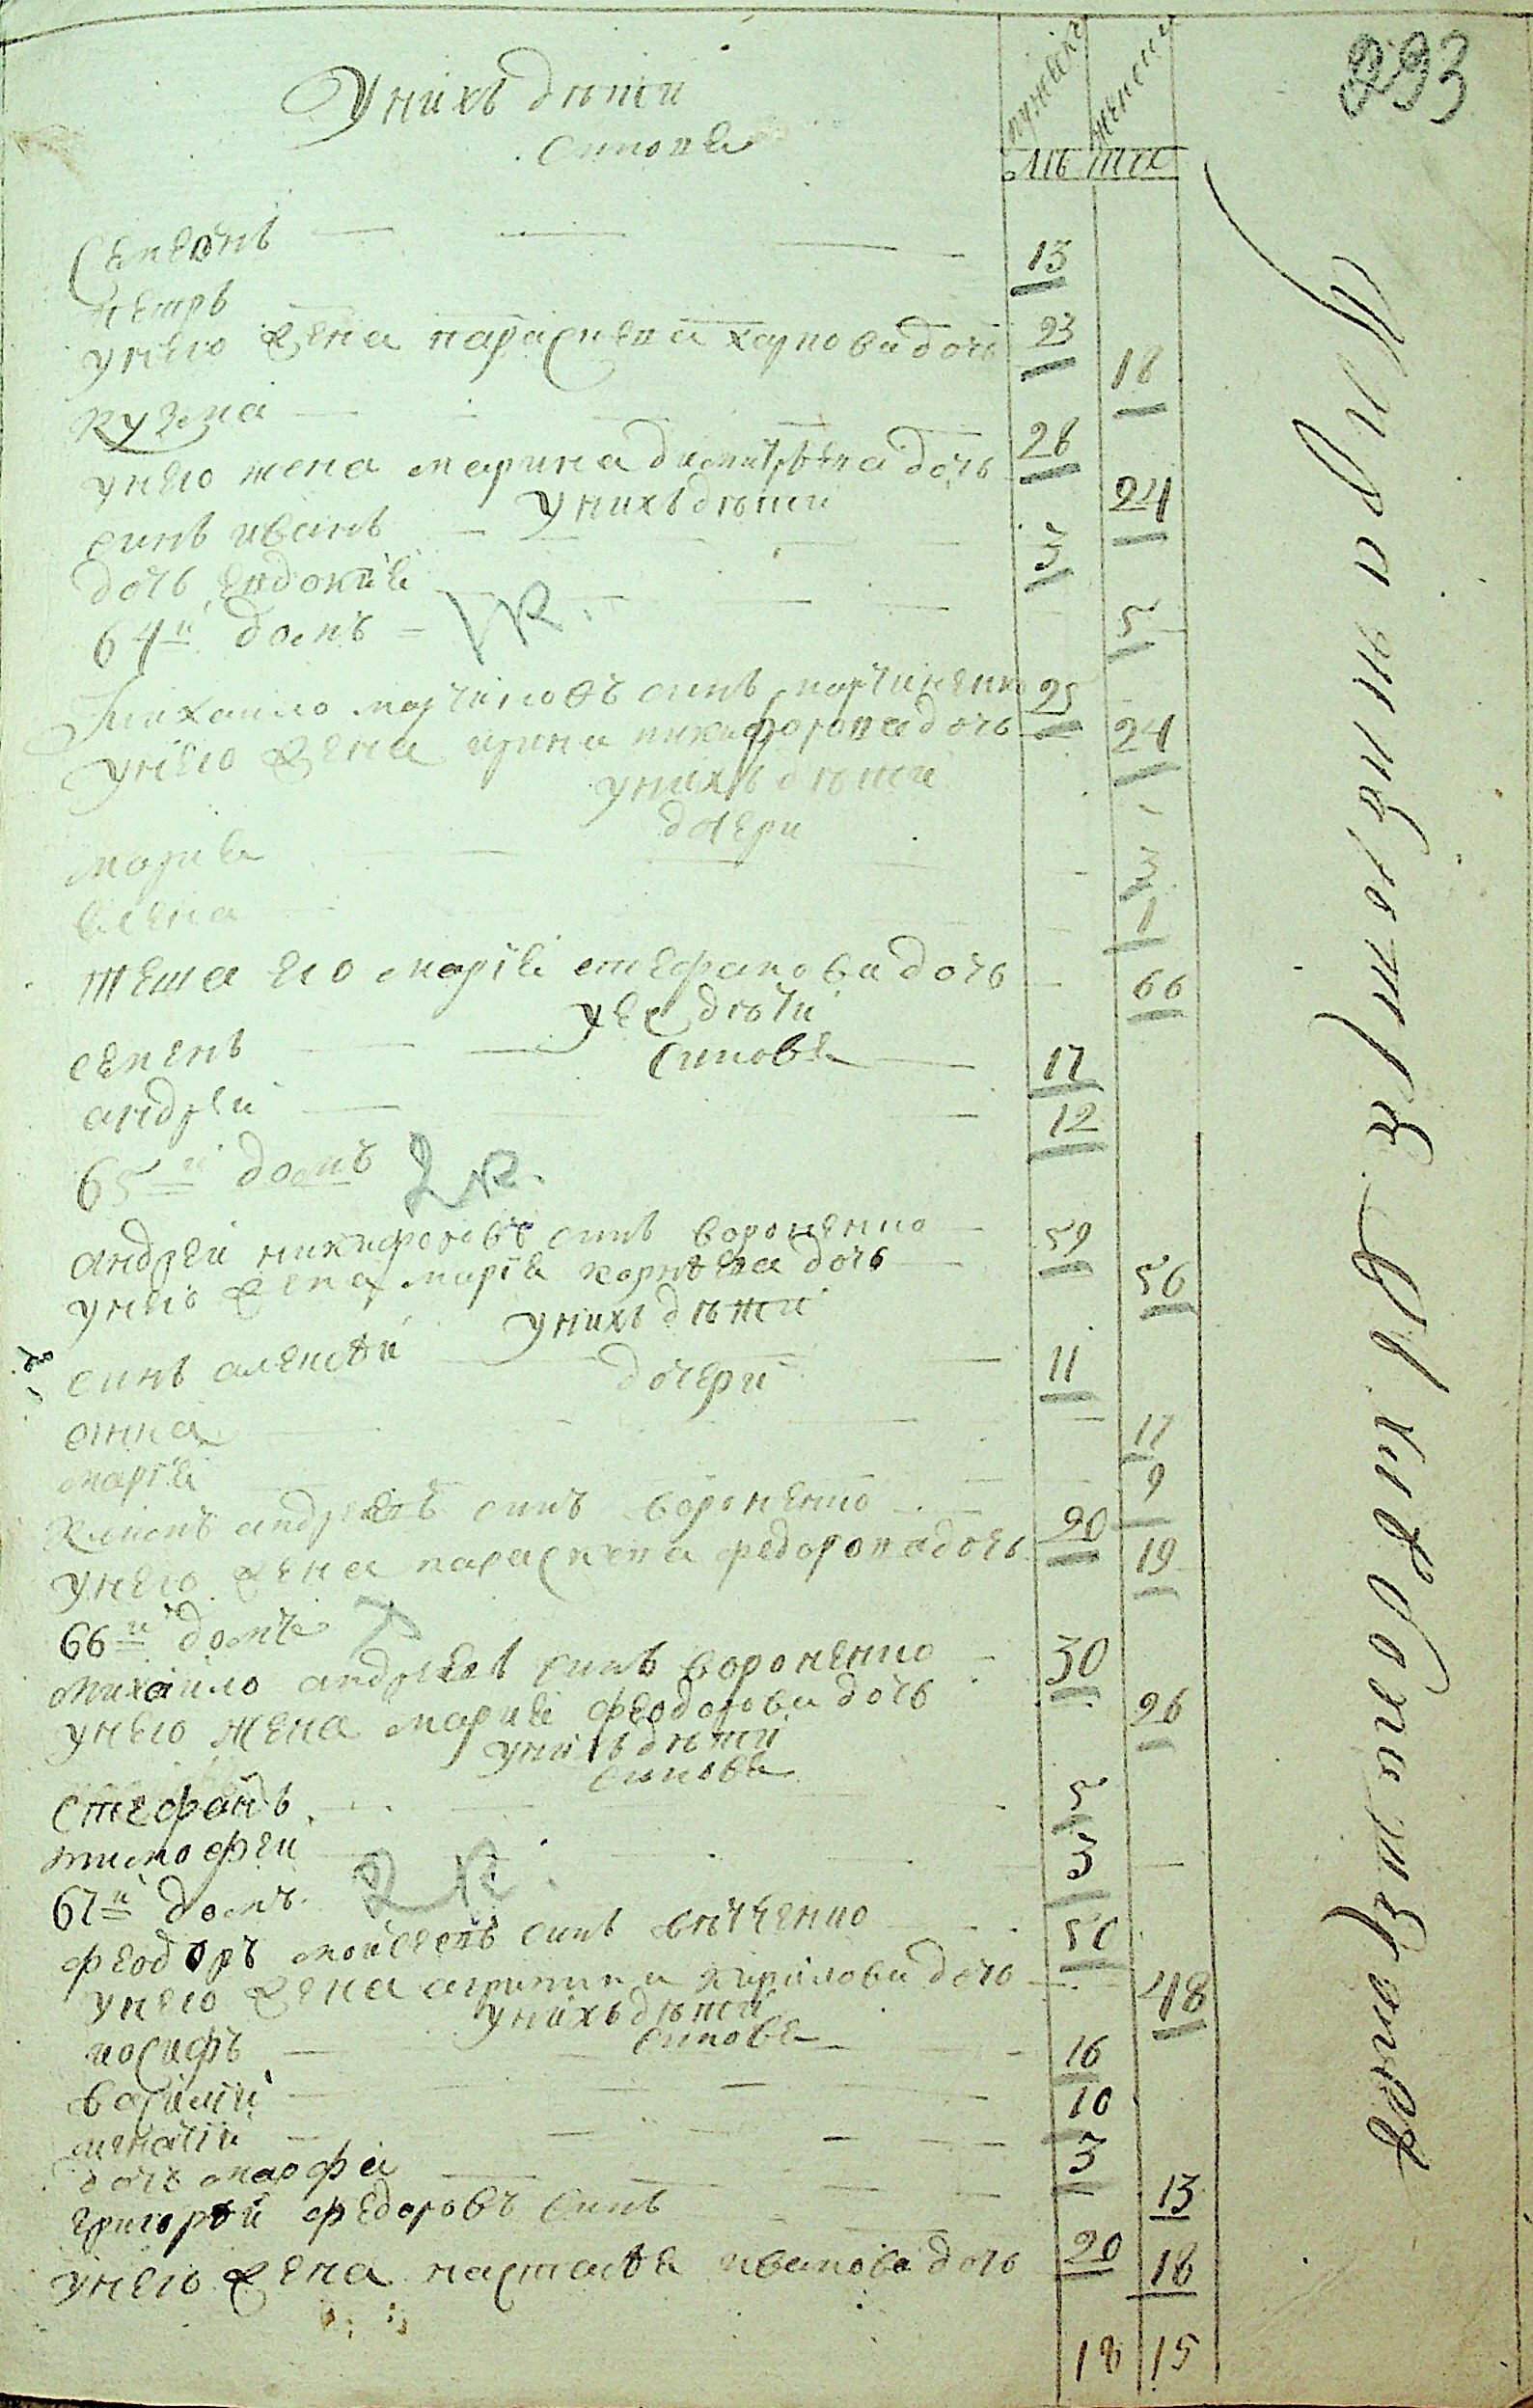 293
мужеска женска
У нихъ дѣти
синовя
лѣта
Семенъ 13
Петръ 23
у него жена параскева карпова дочь 18
Кузма 28
у него жена марина димитрѣева дочь 24
У нихъ дѣти
синъ иванъ 3
дочь евдокія 5
64й домъ
Михаило мартиновъ синъ мартиненко 25
у него жена ирина никифорова дочь 24
у нихъ дѣти
дочери
марія 3
елена 1
теща его марія стефанова дочь 66
у ее дѣти
синовя
семенъ 17
андрей 12
65й домъ 2 к.
андрей никифоровъ синъ вороненко 59
у него жена марія корнѣева дочь 56
у нихъ дѣти
синъ алексѣй 11
дочери
анна 17
марія 9
Климъ андреевъ синъ вороненко 20
у него жена параскева федорова дочь 19
66й домъ
михаило андреевъ синъ вороненко 30
у него жена марія феодорова дочь 26
у нихъ дѣти
синовя
Стефанъ 5
тимофей 3
67й домъ 2 к.
феодоръ моисеевъ синъ 50
у него жена агрипина кирилова дочь 48
у нихъ дѣти
синовя
иосифъ 16
василій 10
игнатій 3
дочь марфа 13
григорѣй федоровъ синъ 20
у него жена настасѣя иванова дочь 18
18 15